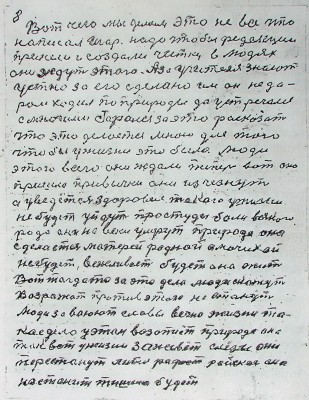 8
Вот чего мы делаем это не все что
написал надо чтобы редакции
пришли и создали честь в людях
они ждут этого. Я за учителя знают
устно за его сделано им он не да
ром ходил по природе да устречался
с многими за это рассказать
что это делается мною для того
чтобы у жизни это было. Люди
этого всего они ждали теперь вот оно
пришло привычки они изчезнут
а уведется здоровье такого у жизни
не будет уйдут простуды боли всякого
рода они не веки умрут природа она
сделается матерей родной а мачихай
не будет, вежливость будет она
Вот тогда то за это дело люди скажут
Возражат против этого не станут
Люди завоюют славы вечно жизни та
кое дело у этап взойтит природа она
так вот у жизни заживет слезы они
перестанут литься радость райская она
настанит тишина будет